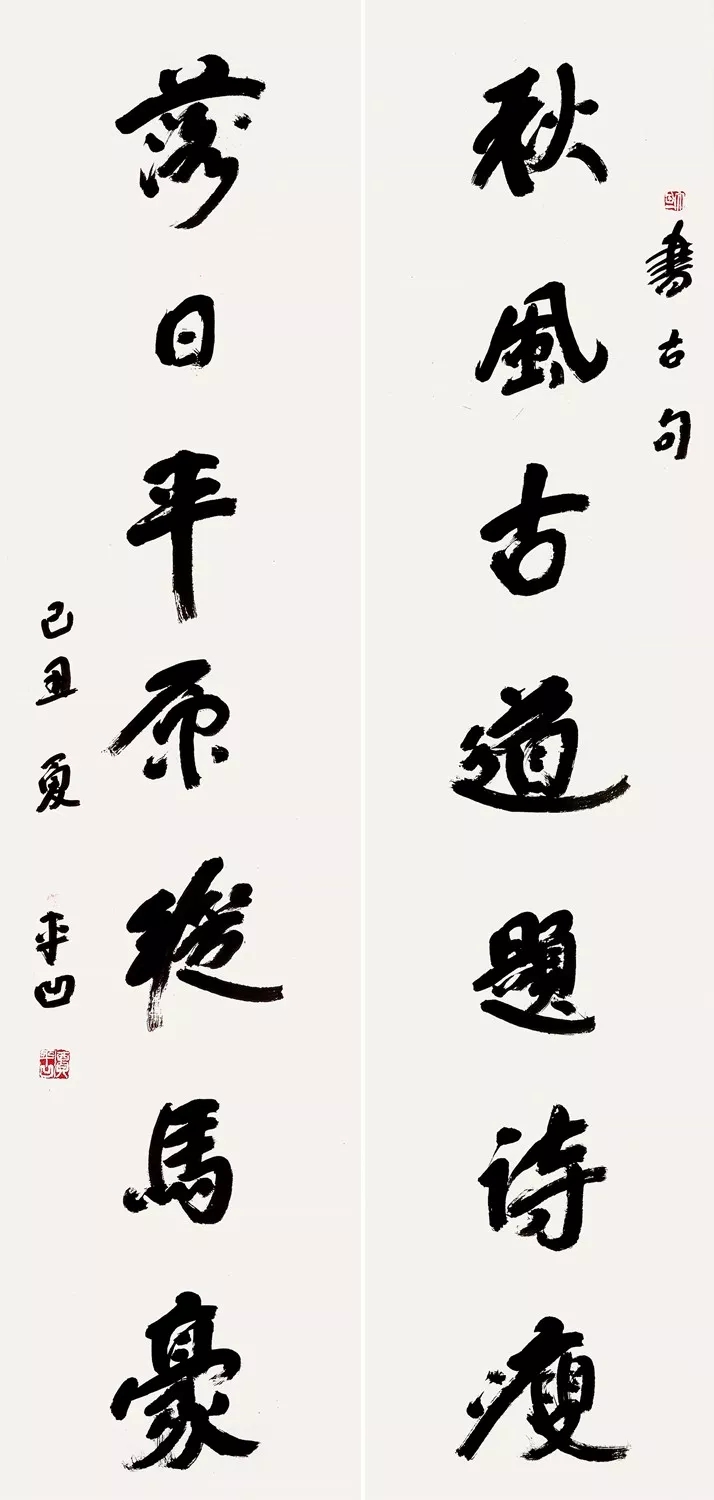 書古句
秋風古道題诗瘦
落日平原縱馬豪
己丑夏 平凹